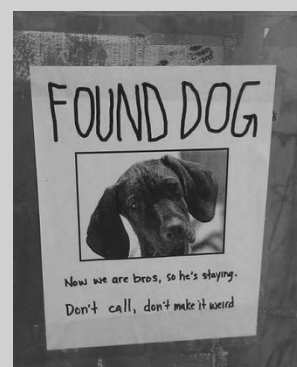 FOUND DOG
Now we are bros, so he's staying.
Don't call, don't make it weird